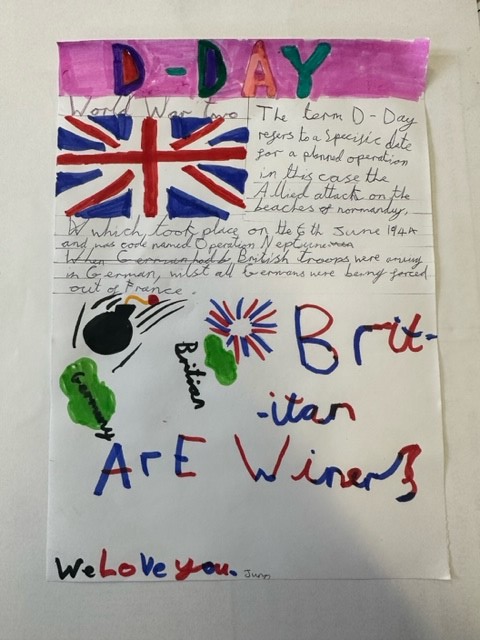 D-DAY
World War two
The term D-Day
refers to a specific date
for a planned operation
in this case the
Allied attack on the
beaches of normandy,
W which took place on the 6th June 1944
and was code named Operation Neptune
When German had b British troops were
in German, wilst all Germans were being forced
out of France.
Germany
Britian
Brit-
-itan
ArE Winers
We Love you.